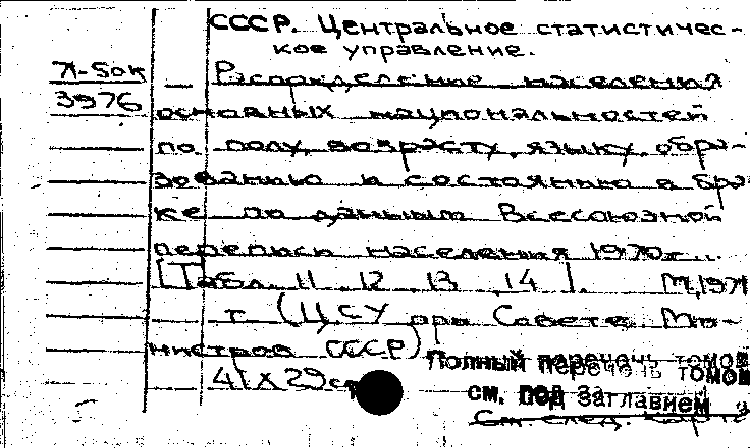 СССР. Центральное статистичес-
кое управление.
Л-50к
3976
Распределение населения
основных национальностей
по полу, возрасту, языку, обра-
зованию и состоянию в бра-
ке по данным Всесоюзной
переписи населения 1970г...
[Табл. 11, 12, 13, 14]. М, 1971
т. (ЦСУ при Совете Ми-
нистров СССР)
41х29см
Полный перечень томов
см. под заглавием
См. след. карт